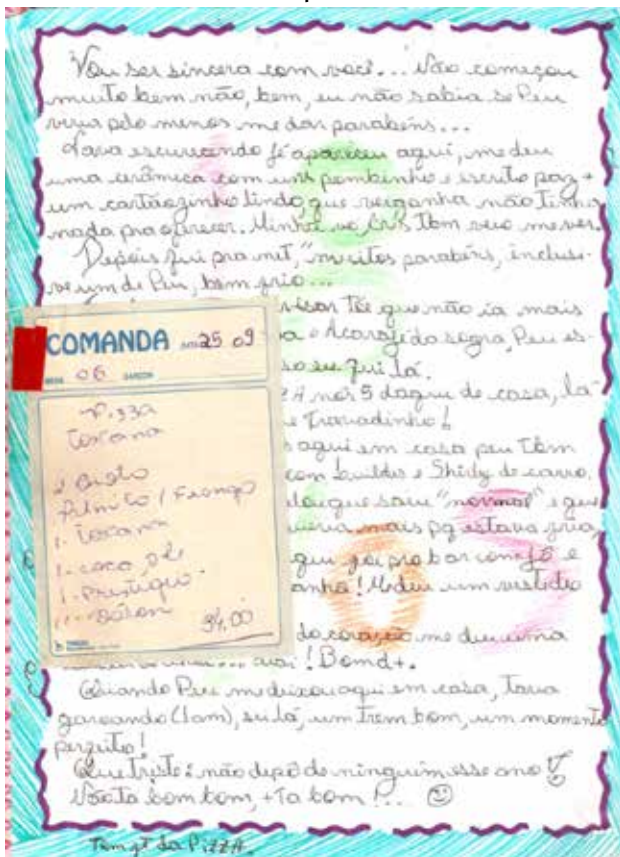 Vou ser sincera com você... Não começou
muito bem não, bem, eu não sabia se Peu
viria pelo menos me dar parabéns...
Tava escurecendo Jê apareceu aqui, me deu
uma cerâmica com uns pombinhos e escrito paz +
um cartãozinho lindo, que vergonha não tinha
nada pra oferecer. Minha vó Cris tbm veio me ver.
Depois fui pra net, "muitos parabéns, inclusi-
ve um de Peu, bem frio...
visar Têe que não ia mais
a o Acarajé da sogra, Peu es-
so eu fui lá.
ZA nós 5 daqui de casa, lá
e Travadinho!
aqui em casa peu tbm
com Euildes e Shirly de carro.
que saiu "normal" e que
queria mais pq estava fria,
foi pro bar com Jê e
anha! Me deu um vestido
do coração me deu uma
! Bomd+.
Quando Peu me deixou aqui em casa, Tava
garoando (1am), sei lá, um trem bom, um momento
perfeito!
Que triste é não depô de ninguém esse ano
Não tá bom bom, + Ta bom!...
COMANDA
25 09
MESA 06 GARÇON
Pizza
Toscana
2 Guito
Palmito / Frango
1- Toscana
1- coca 2L
1- Prestigio
1- Baton
34,00
Tempt da PiZZA.